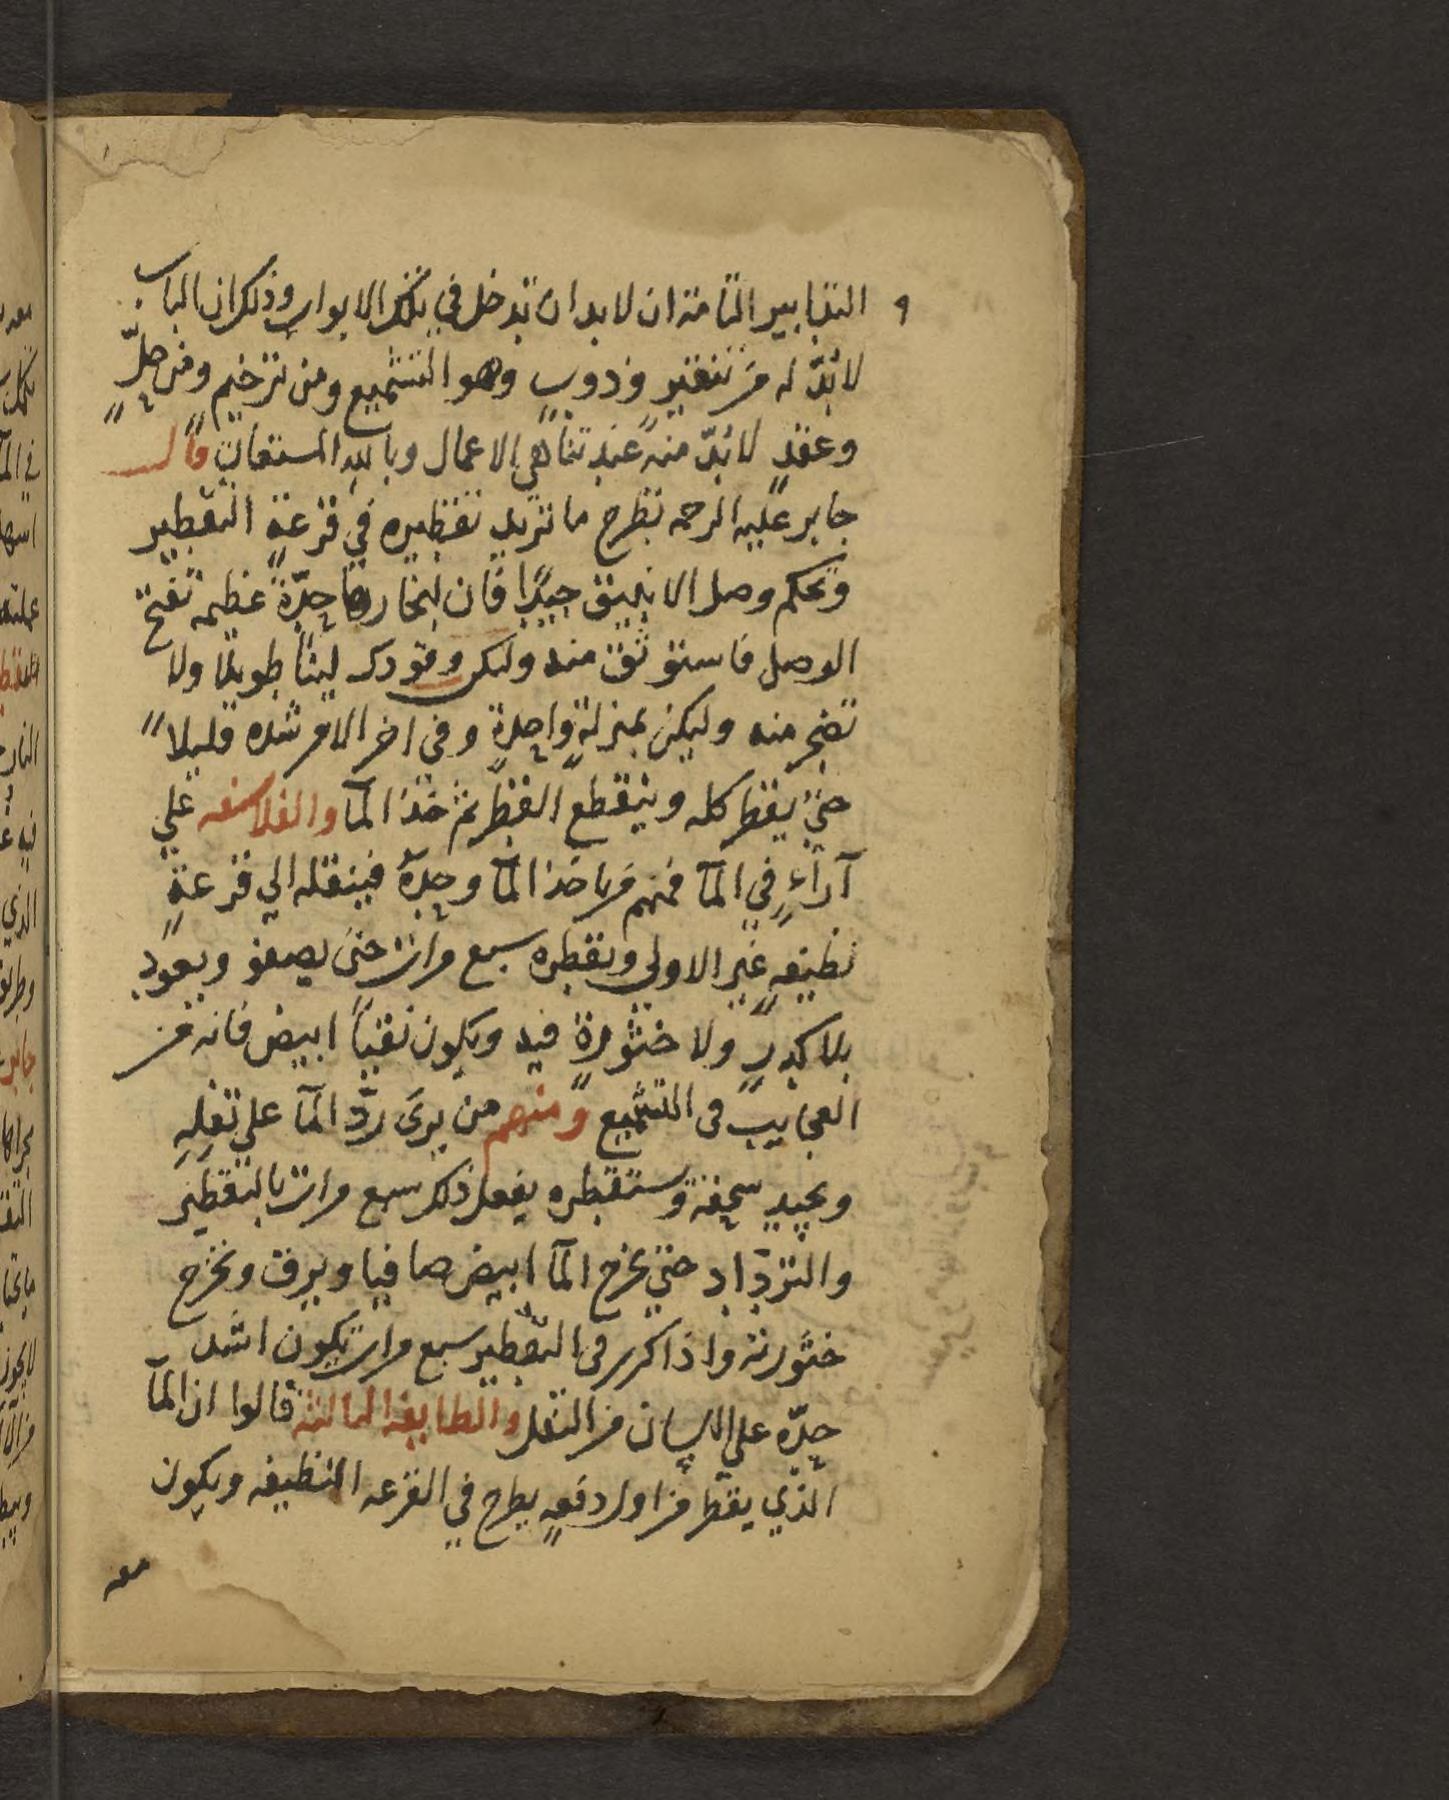 التدابير التامة ان لا بد ان تدخل في تلك الابواب وذلك ان الباب
لا بُدّ له من تنقيرٍ وذوبٍ وهو التشميع ومن ترخيم ومن حلٍّ
وعقدٍ لا بُدّ منه عند تناهي الاعمال وبالله المستعان قال
جابر عليه الرحمه تطرح ما تريد تقطيره في قرعة التقطير
وتحكم وصل الانبيق جيدًا فان لبخارها حِدّة عظيمه تفتح
الوصل فاستوثق منه وليكن وقودك لينًا طويلا ولا
تضجر منه وليكن بمنزلةٍ واحدةٍ وفي اخر الامر شده قليلا
حتي يقطر كله وينقطع القطر ثم خذ المآ والفلاسفه علي
آراءٍ في المآ فمنهم من ياخذ المآ وحدهُ فينقله الي قرعةٍ
نظيفهٍ غير الاولى ويقطره سبع مرات حتى يصفو ويعود
بلا كدرٍ ولا خثورةٍ فيه ويكون نقيًا ابيض فانه من
العجايب في التشميع ومنهم من يرى ردّ المآ على ثفلِهِ
ويجيد سحقه ويستقطره يفعل ذلك سبع مرات بالتقطير
والترداد حتي يخرج المآ ابيض صافيا ويبرق وتخرج
خثورته واذا كرر في التقطير سبع مرات يكون اشد
حِدّه علي اللسان من الثفل والطايفه الثالثة قالوا ان المآ
الذي يقطر من اول دفعهٍ يطرح في القرعه النظيفه ويكون
معه